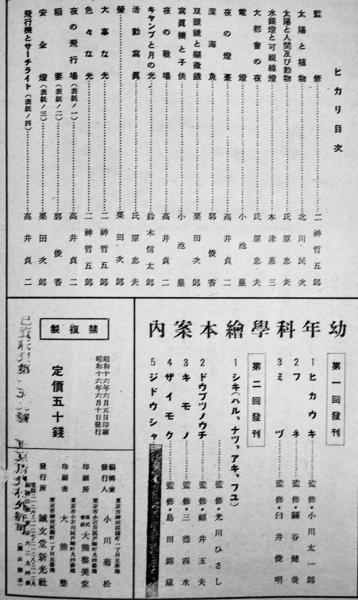 ヒカリ目次
監修……二神哲五郎
太陽と植物……北川民次
太陽と人間及び動物……氏原忠夫
水銀燈と可視線燈……本津惠三
大都會の夜……氏原忠夫
電燈……小池巖
夜の燈臺……高井貞二
深海魚……郭俊香
双眼鏡と顯微鏡……栗田次郎
寫眞機と子供……小池巖
夜の戰場……高井貞二
キャンプと月の光……鈴木信太郎
活動寫眞……氏原忠夫
螢……栗田次郎
大事な光……二神哲五郎
色々な光……二神哲五郎
夜の飛行場(表紙ノ一)……高井貞二
稻妻(表紙ノ二)……郭俊香
安全燈(表紙ノ三)……栗田次郎
飛行機とサーチライト(表紙ノ四)……高井貞二
幼年科學繪本案内
第一回發刊
1ヒカウキ……監修・小川太一郎
2フネ……監修・關谷健哉
3ミヅ……監修・臼井俊明
第二回發刊
1シキ(ハル、ナツ、アキ、フユ)
監修・光川ひさし
2ドウブツノウチ……監修・福井玉夫
3キモノ……監修・三德四水
4ザイモク……監修・島田錦藏
5ジドウシャ
禁復製
昭和十六年六月五日印刷
昭和十六年六月十日發行
定價五十錢
編輯兼發行人 小川菊松
印刷所 大熊整美堂
印刷者 大熊整
發行所 誠文堂新光社